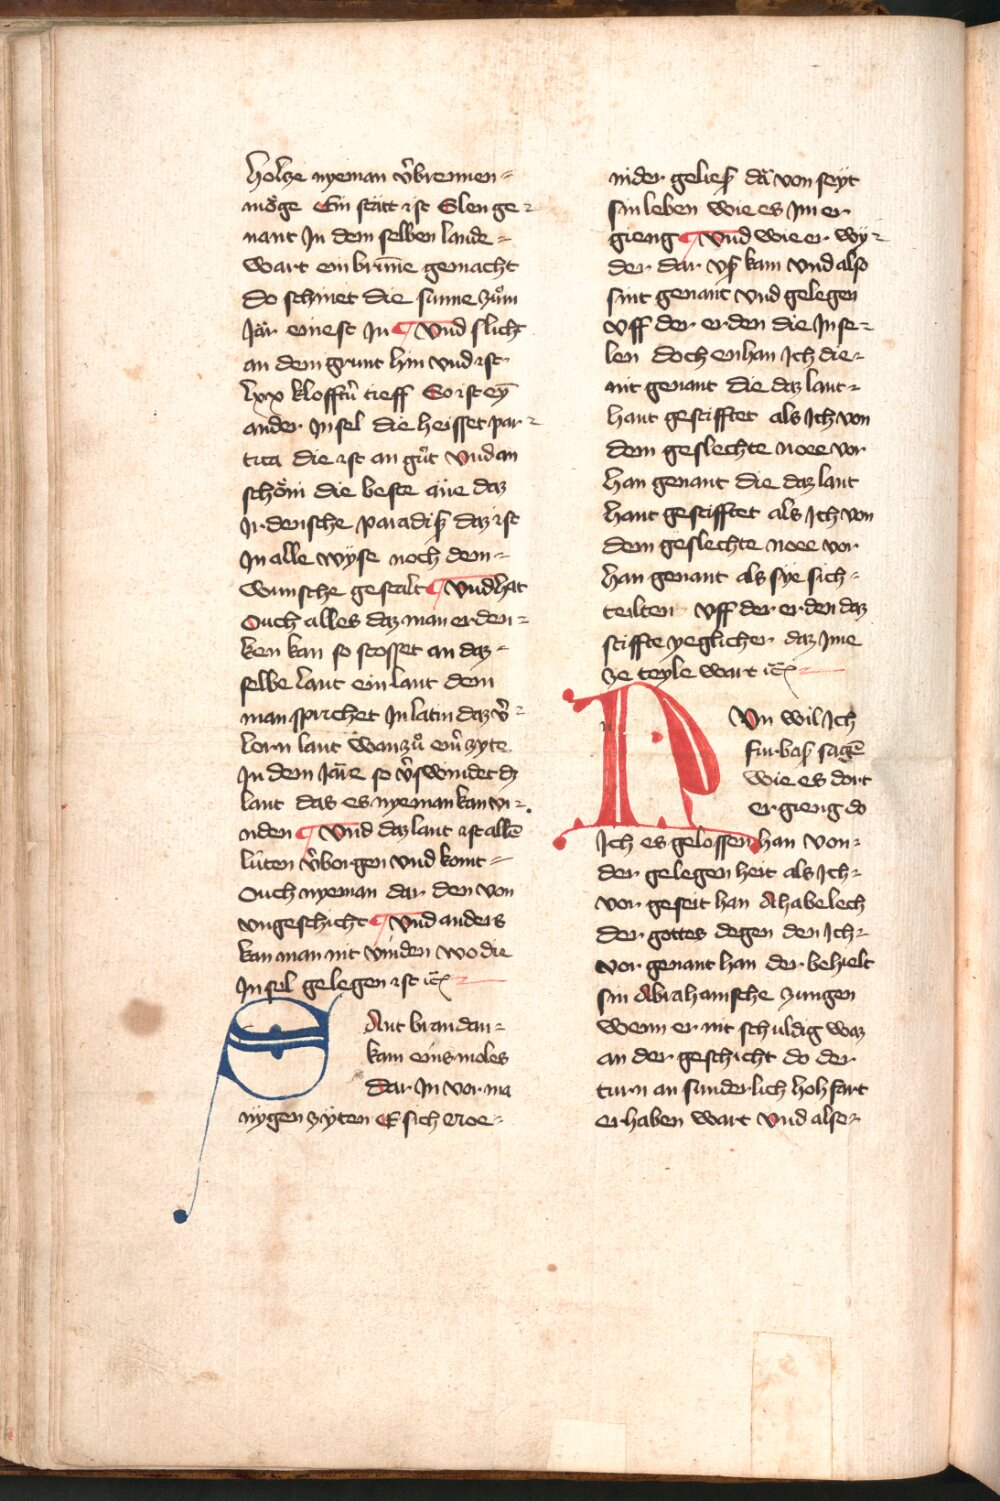 holtze nyeman v̉brennen⸗
moͤge Ein statt ist Elen ge⸗
nant In dem selben lande⸗
wart ein brūne gemacht
do schinet die sunne zuͦm
Jar einest In ¶ Vnd slicht
an dem grunt hin vnd ist
lxx klofft̉n tieff So ist eȳ
ander Insel die heisset par⸗
tita die ist an guͦt vnd an
schoͤni die beste ane daz
Irdensche paradiß daz ist
In alle wyse noch dem⸗
wunsche gestalt ¶ Vnd hat
Ouch alles daz man erden⸗
ken kan so stosset an daz⸗
selbe lant ein lant dem
man sprichet In latin daz v̉⸗
lorn lant Wan zuͦ ein̉ zyte
In dem Jare so v̉swindet dz
lant das es nyeman kan vi⸗
nden ¶ Vnd daz lant ist allē
luͤten v̉borgen vnd komt⸗
Ouch nyeman dar den von
vngeschicht ¶ Vnd anders
kan man nit vinden wo die
Insel gelegen ist ꝛc̄
SAnt brandan⸗
kam eins moles
dar In vor ma
nygen zyten Er sich eroe⸗
nider geließ da von seyt
sin leben wie es Im er
gieng ¶ Vnd wie er wy⸗
der dar vß kam vnd also
sint genant vnd gelegen
vff der erden die Inse⸗
len doch enhan Ich die⸗
nit genant die daz lant⸗
hant gestifftet als Ich von
dem geslechte noee vor
han genant die daz lant
hant gestifftet als Ich von
dem geslechte noee vor
han genant als sye sich⸗
teilten vff der erden daz
stiffte yeglicher daz Ime
ze teyle wart ꝛc̄
NVn wil Ich
furbaß sagē
wie es dort
ergieng do
Ich es gelossen han von⸗
der gelegenheit als Ich⸗
vor geseit han Ahabelech
der gottes degen den Ich⸗
vor genant han der behielt
sin Abrahamsche zungen
wenn er nit schuldig waz
an der geschicht do der
turn an sunderlich hohfart
erhaben wart vnd alse⸗